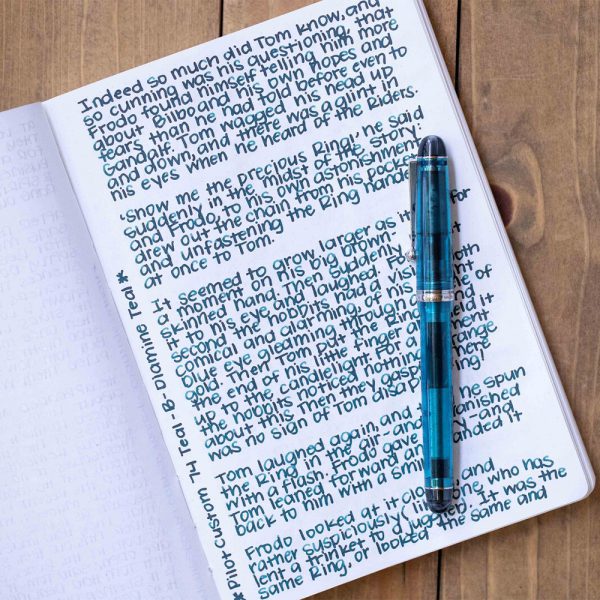 Indeed so much did Tom know, and
so cunning was his questioning, that
Frodo found himself telling him more
about Bilbo and his own hopes and
fears than he had told before even to
Gandalf. Tom wagged his head up
and down, and there was a glint in
his eyes when he heard of the Riders.
'Show me the precious Ring!' he said
suddenly in the midst of the story:
and Frodo, to his own astonishment,
drew out the chain from his pocket
and unfastening the Ring handed
at once to Tom.
It seemed to grow larger as it for
a moment on his big brown-
skinned hand. Then suddenly
it to his eye and laughed. For
second the hobbits had a vision, both
comical and alarming, of his
blue eye gleaming through a of
gold. Then Tom put the Ring
the end of his little finger and held it
up to the candlelight. For a moment
the hobbits noticed nothing strange
about this. Then they gasped. There
was no sign of Tom disa
Tom laughed again, and he spun
the Ring in the air - and vanished
with a flash. Frodo gave and
Tom leaned forward and handed it
back to him with a smile
Frodo looked at it clo and
rather suspiciously (like one who has
lent a trinket to a juggler). It was the
same Ring, or looked the same and
*Pilot Custom 74 Teal - B - Diamine Teal*